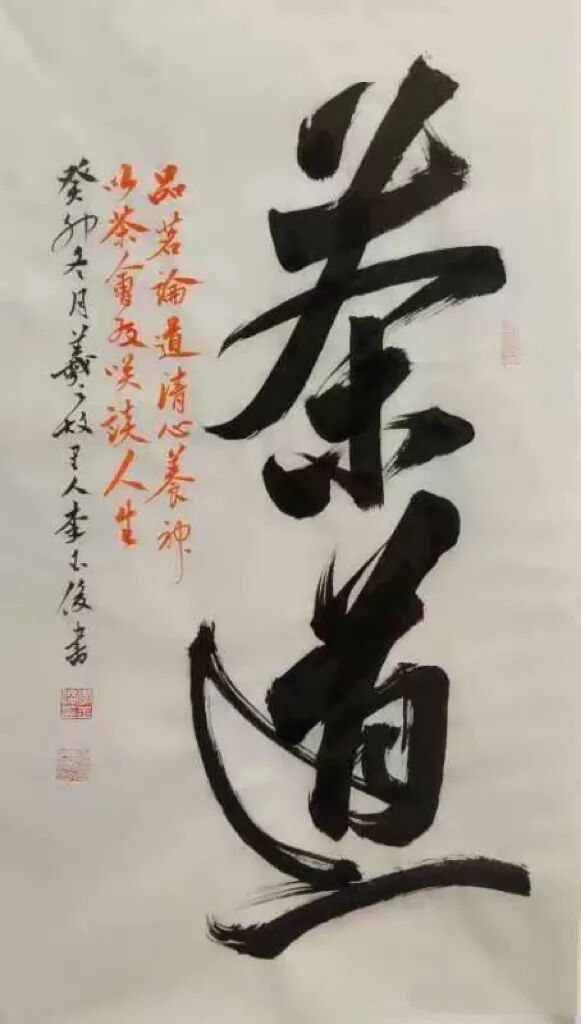 茶道
品茗論道清心養神
以茶會友笑談人生
癸卯冬月羲之故里人李玉俊書